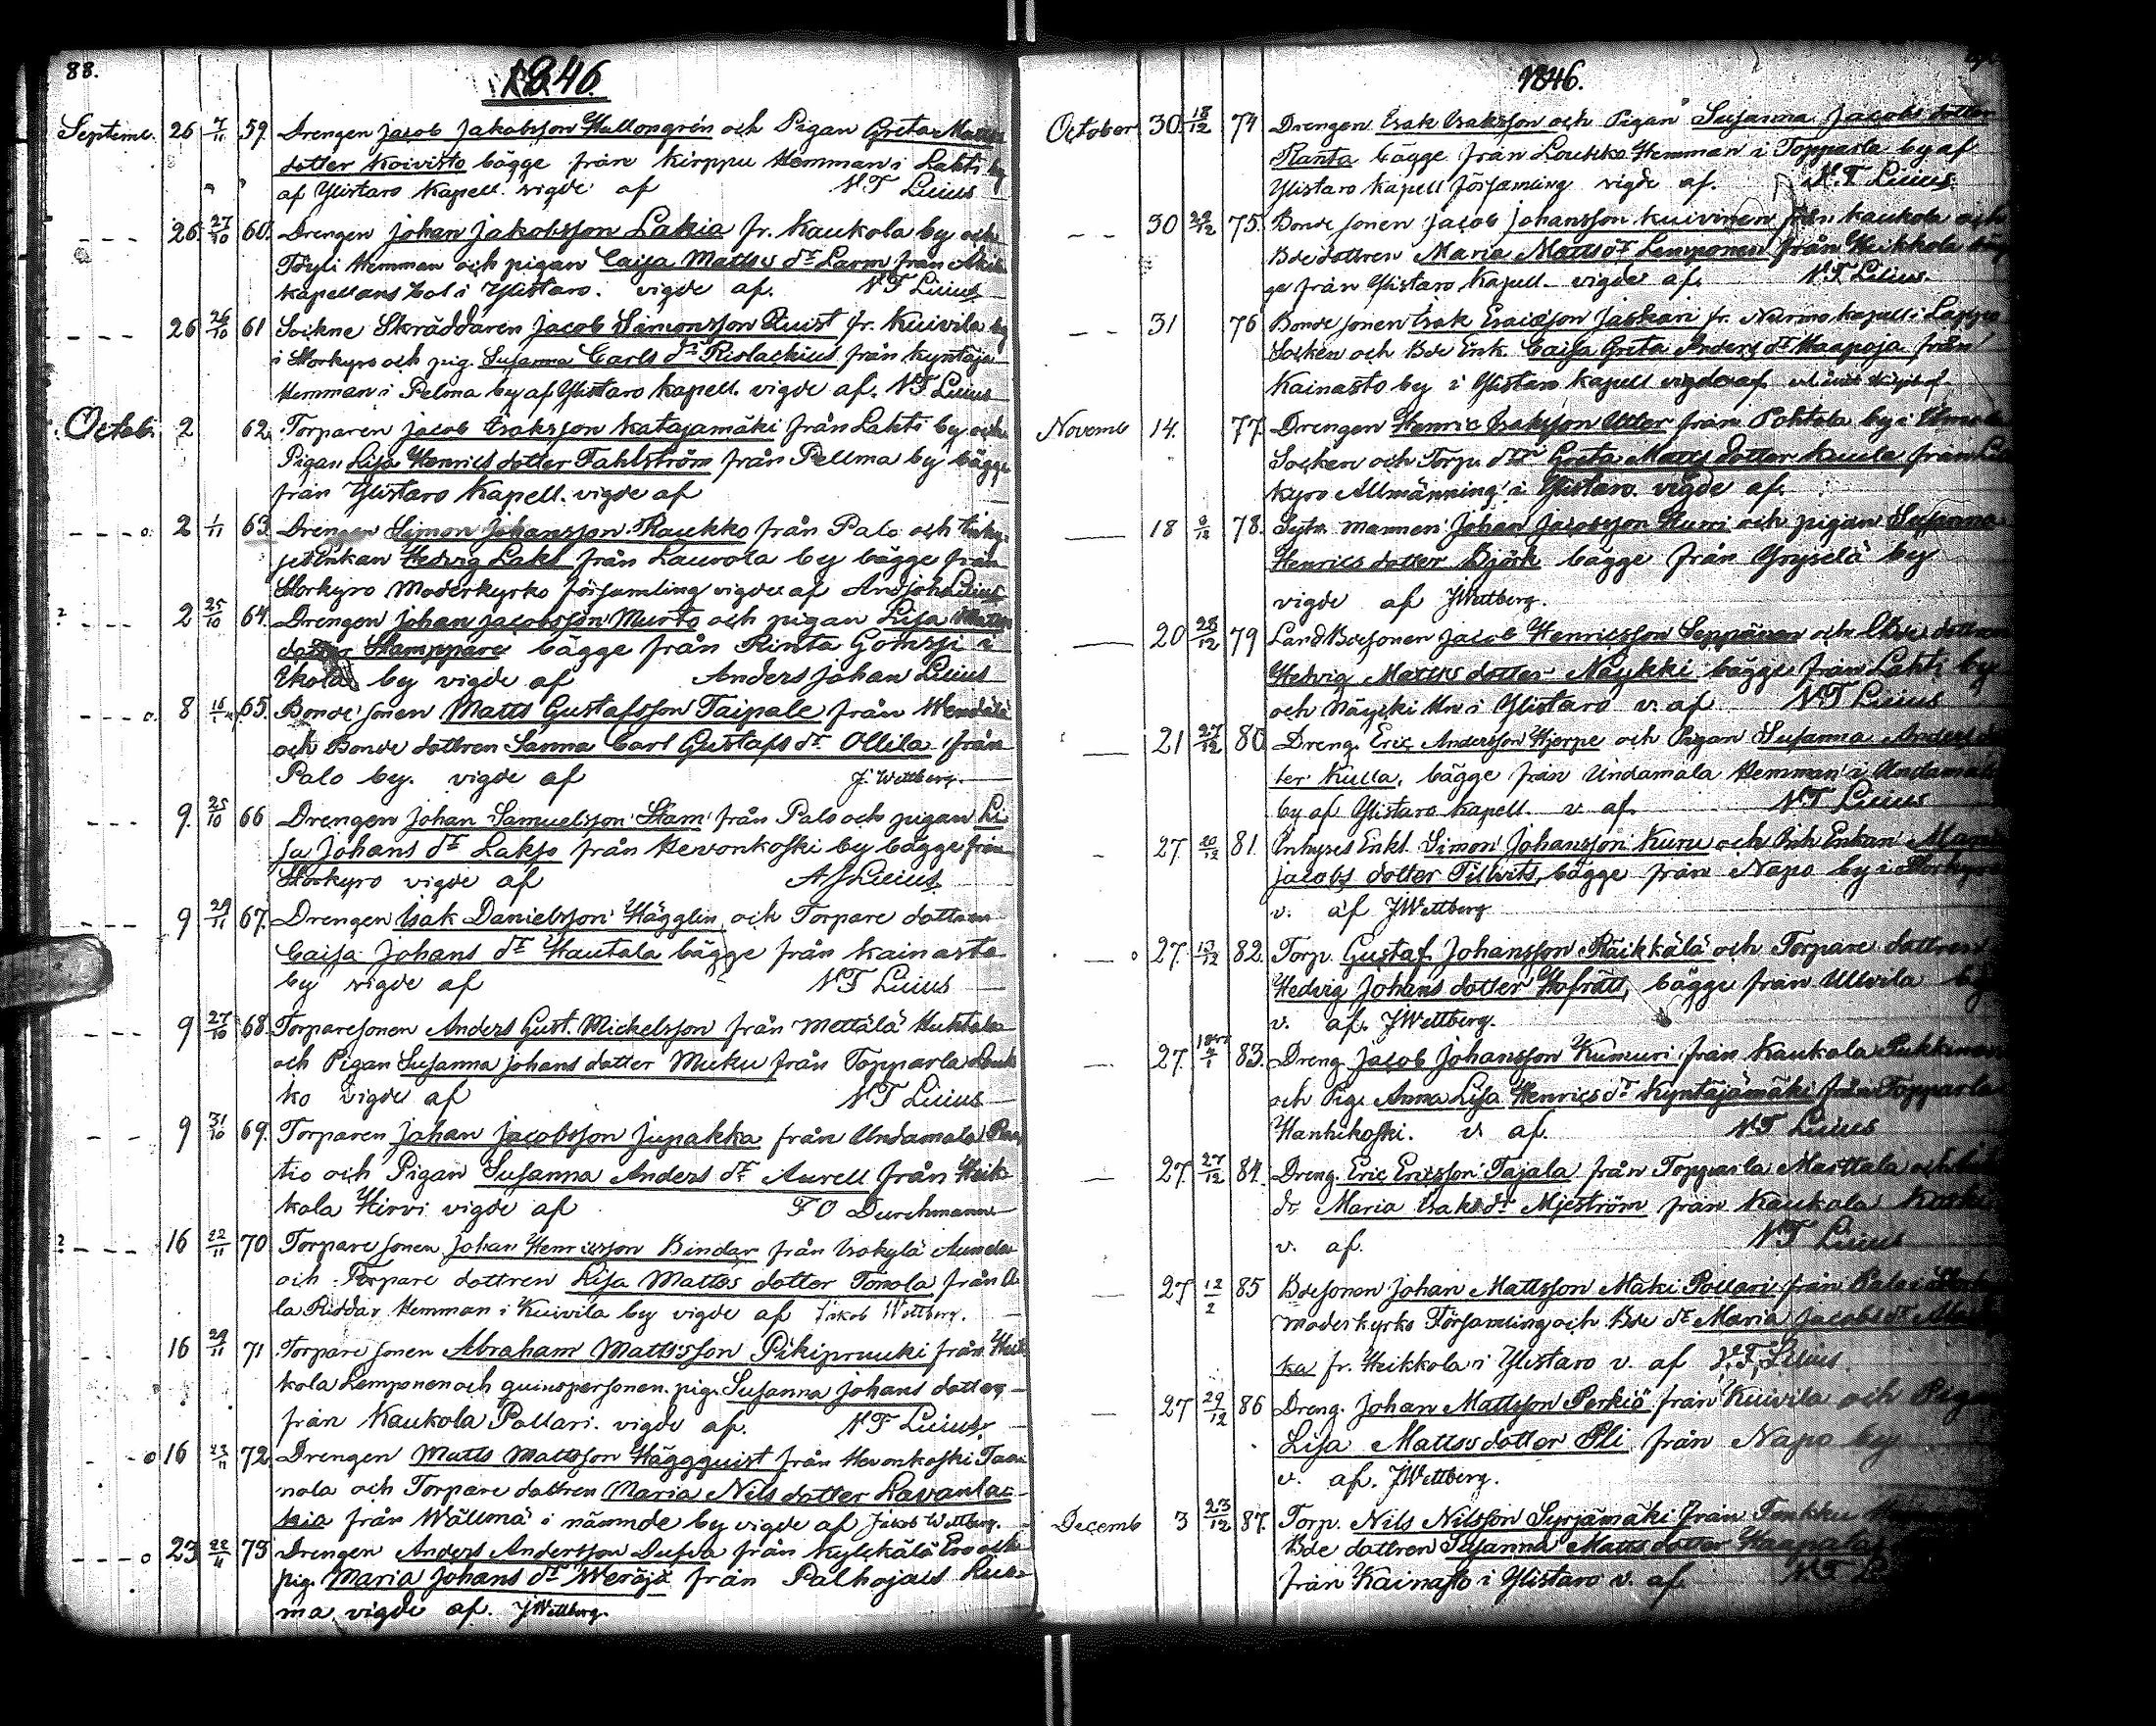 88.
1846.
Septemb. 26 7/11 59. Drengen Jacob Jakobsson Hallongrén och Pigan Greta Matts
dotter Koivisto bägge från Kirppu Hemman i Lahti by
af Ylistaro Kapell. vigde af N F Lilius
26 27/10 60. Drengen Johan Jakobsson Lakia fr. Kaukola by och
Töyli Hemman och pigan Caisa Matts dr Larm från
kapellans bol i Ylistaro. vigde af. N F Lilius
26 26/10 61 Sockne Skräddaren Jacob Simonsson Quist fr. Kuivila by
i Storkyro och pig. Susanna Carls dr Riolachius från Kyntäjä
Hemman i Pelma by af Ylistaro Kapell. vigde af. N F Lilius
Octob. 2 62. Torparen Jacob Isaksson Katajamäki från Lahti by och
Pigan Lisa Henrics dotter Fahlström från Pellma by bägge
från Ylistaro Kapell. vigde af
2 1/11 63. Drengen Simon Johansson Raukko från Palo och Inhy-
Enkan Hedvig Laks från Laurola by bägge från
Storkyro Moderkyrko församling vigde af And Joh Lilius
2 25/10 64. Drengen Johan Jacobsson Murto och pigan Lisa Matts
dotter Stamppare bägge från Rinta Gomsi i
Ikola by vigde af Anders Johan Lilius
8 65. Bonde sonen Matts Gustafsson Taipale från Hendälä
och Bonde dottren Sanna Carl Gustafs dr Ollila från
Palo by. vigde af J. Wettberg.
9. 25/10 66 Drengen Johan Samuelsson Stam från Palo och pigan Li-
sa Johans dr Lakso från Hevonkoski by bägge från
Storkyro vigde af A J Lilius
9 29/11 67. Drengen Isak Danielsson Hägglin och Torpare dottren
Caisa Johans dr Hautala bägge från Kainasto
by vigde af N F Lilius
9 27/10 68. Torparesonen Anders Gust. Mickelsson från Mettälä Huhtala
och Pigan Susanna Johans dotter Muku från Topparla Louk
ko vigde af N F Lilius
9 31/10 69. Torparen Johan Jacobsson Jupakka från Untamala
tio och Pigan Susanna Anders dr Aurell från Heik-
kola Hirvi vigde af F O Durchmann
16 22/11 70 Torpare sonen Johan Henricsson Bindar från Isokylä
och Torpare dottren Lisa Matts dotter Tönola från A
la Riddar Hemman i Kuivila by vigde af Jakob Wettberg.
16 29/11 71 Torpare sonen Abraham Mattsson Pikipruuki från Heik
kola Lemponen och quinspersonen. pig. Susanna Johans dotter
från Kaukola Pollari. vigde af. N F Lilius.
16 23/11 72. Drengen Matts Mattsson Häggquist från Hevonkoski Taa
nola och Torpare dottren Maria Nils dotter Lavanlai-
kia från Wällmä i nämnde by vigde af Jakob Wettberg.
23 22/4 73 Drengen Anders Andersson Dufva från Kylkkälä Ero och
pig. Maria Johans dr Weräjä från Palhojais Lui-
ma vigde af. J Wettberg.
1846.
October 30 18/12 74 Drengen Isak Isaksson och Pigan Susanna Jacobs dotter
Ranta bägge från Loukko Hemman i Topparla by af
Ylistaro Kapell församling vigde af. N. F Lilius.
30 75. Bonde sonen Jacob Johansson Kuivinen från Kaukola och
Bde dottren Maria Matts dr Lemponen från Heikkola bäg
ge från Ylistaro Kapell vigde af. N F Lilius.
31 76 Bonde sonen Isak Esaiasson Jaskari fr. Nurmo Kapell i Lappo
Socken och Bde Enk. Caisa Greta Anders dr Haapoja från
Kainasto by i Ylistaro Kapell vigde af
Novemb 14. 77. Drengen Henric Isaksson Utter från Pohtola by i
Socken och Torp. dtr Greta Matts dotter Kuula från
kyro Allmänning i Ylistaro vigde af.
18 78. Sytn mannen Johan Jacobsson Hurri och pigan Susanna
Henrics dotter Björk bägge från Yryselä by
vigde af J Wettberg.
20 28/12 79 Land Bdesonen Jacob Henricsson Seppänen och Bde dottren
Hedvig Matts dotter Näykki bägge från Lahti by
och Näycki Hn i Ylistaro v. af N F Lilius
21 27/12 80 Dreng. Eric Andersson Hjerpe och Pigan Susanna Anders
ter Kulla, bägge från Undamala Hemman i Undamala
by af Ylistaro Kapell. v. af. N F Lilius
27. 20/12 81. Inhyses Enkl. Simon Johansson Kuru och Inh Enkan Maria
Jacobs dotter Tillvits, bägge från Napo by i Storkyro
v. af J Wettberg
27. 13/12 82. Torp. Gustaf Johansson Räikkälä och Torpare dottren
Hedvig Johans dotter Hofrätt, bägge från Ullvila by
v. af. J Wettberg.
27. 83. Dreng Jacob Johansson Kumuri från Kaukola Pukkinen
och Pig. Anna Lisa Henrics dr Kyntäjämäki från Topparla
Hanhikoski. v. af. N F Lilius
27. 27/12 84. Dreng. Eric Ericsson Tajala från Topparla Marttala och
dr Maria Isaks dr Mjeström från Kaukola
v. af. N F Lilius
27 12/2 85 Bdesonen Johan Mattsson Mäki Pollari från Palo i
moderkyrko Församling och Bde dr Maria Jacobs dr
ka fr. Heikkola i Ylistaro v. af N. F. Lilius
27 29/12 86 Dreng. Johan Mattsson Perkiö från Kuivila och Pigan
Lisa Matts dotter Pli från Napo by
v. af. J Wettberg.
Decemb 3 23/12 87. Torp. Nils Nilsson Syrjämäki från Tonkku
Bde dottren Susanna Matts dotter Haapala
från Kainasto i Ylistaro v. af. N. F L